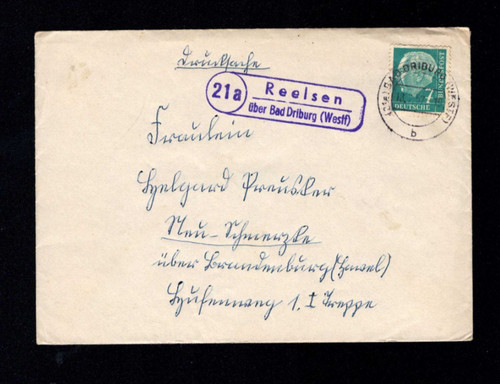 Drucksache
21a
Reelsen
über Bad Driburg (Westf)
(21a) BAD DRIBURG (WESTF)
b
7
DEUTSCHE BUNDESPOST
Fräulein
Helgard Preusker
Neu-Schmerzke
über Brandenburg (Havel)
Hufenweg 1. I Treppe